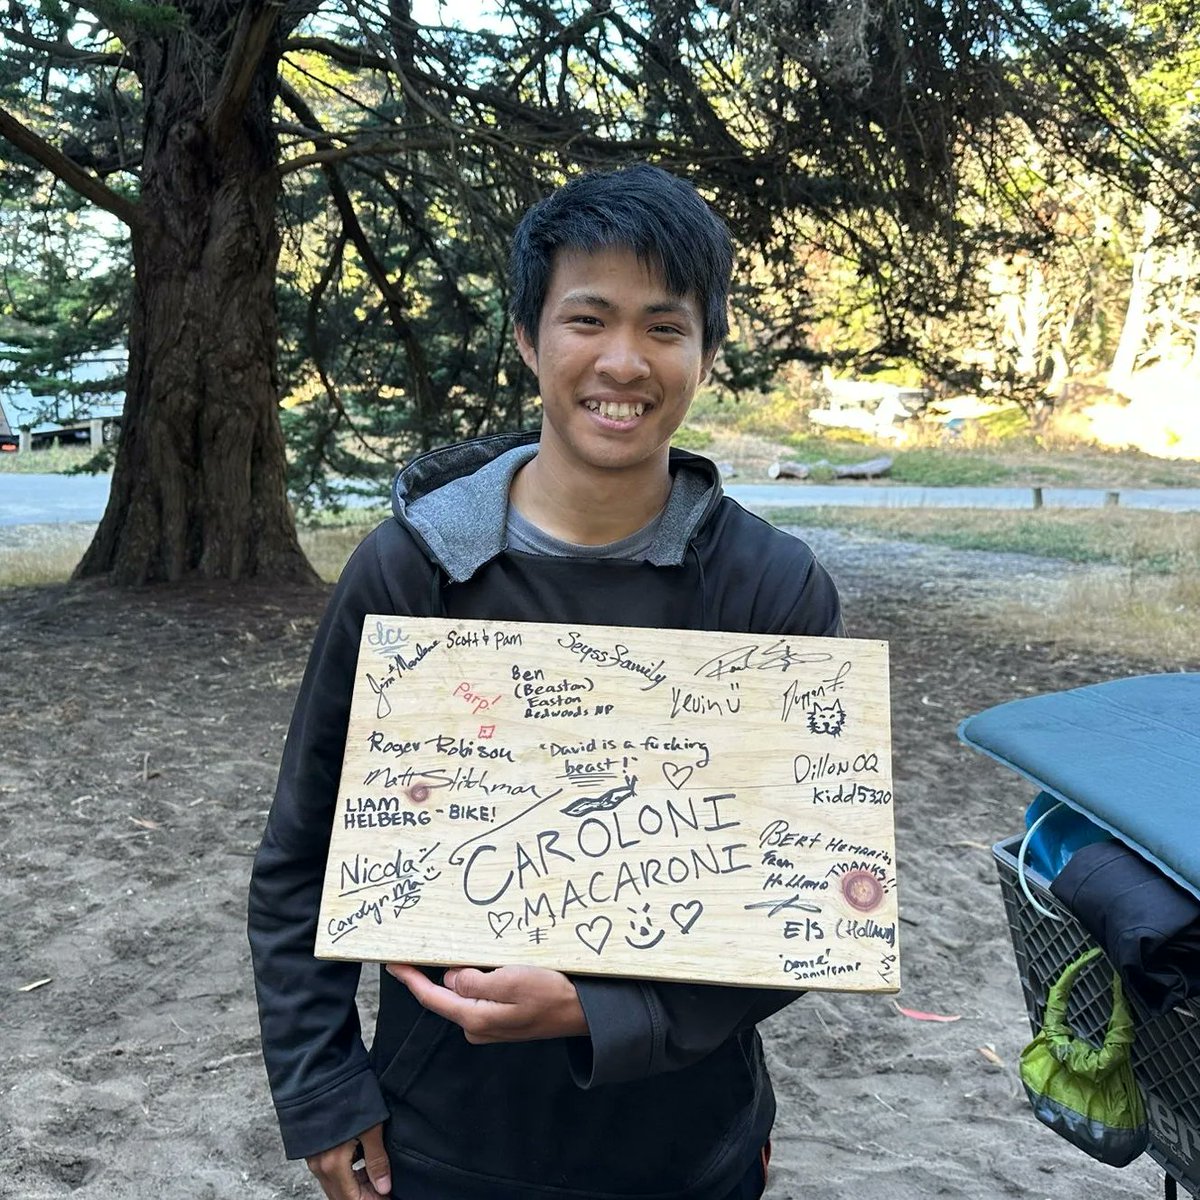 Jim & Marlene
Scott & Pam
Seyss Family
Parp!
Ben
(Beaston)
Easton
Redwoods NP
Kevin
Roger Robison
"David is a fucking
beast!"
Matt Stitchman
LIAM
HELBERG - BIKE!
Dillon OQ
Kidd5320
CAROLONI
MACARONI
Nicola
Carolyn Ma
BERT
From
Holland
THANKS!!
Els (Holland)
"Daniel"